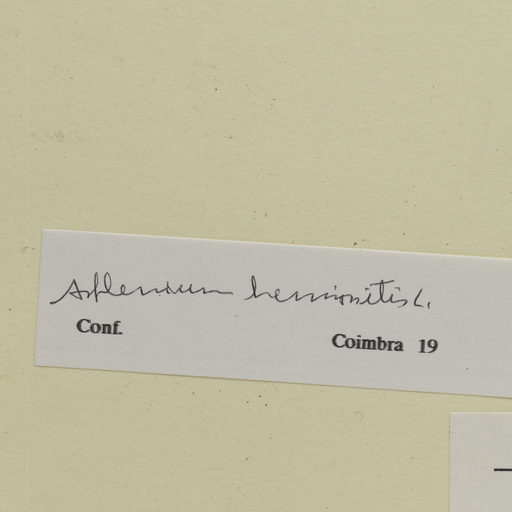 Asplenium hemionitis L.
Conf.
Coimbra 19